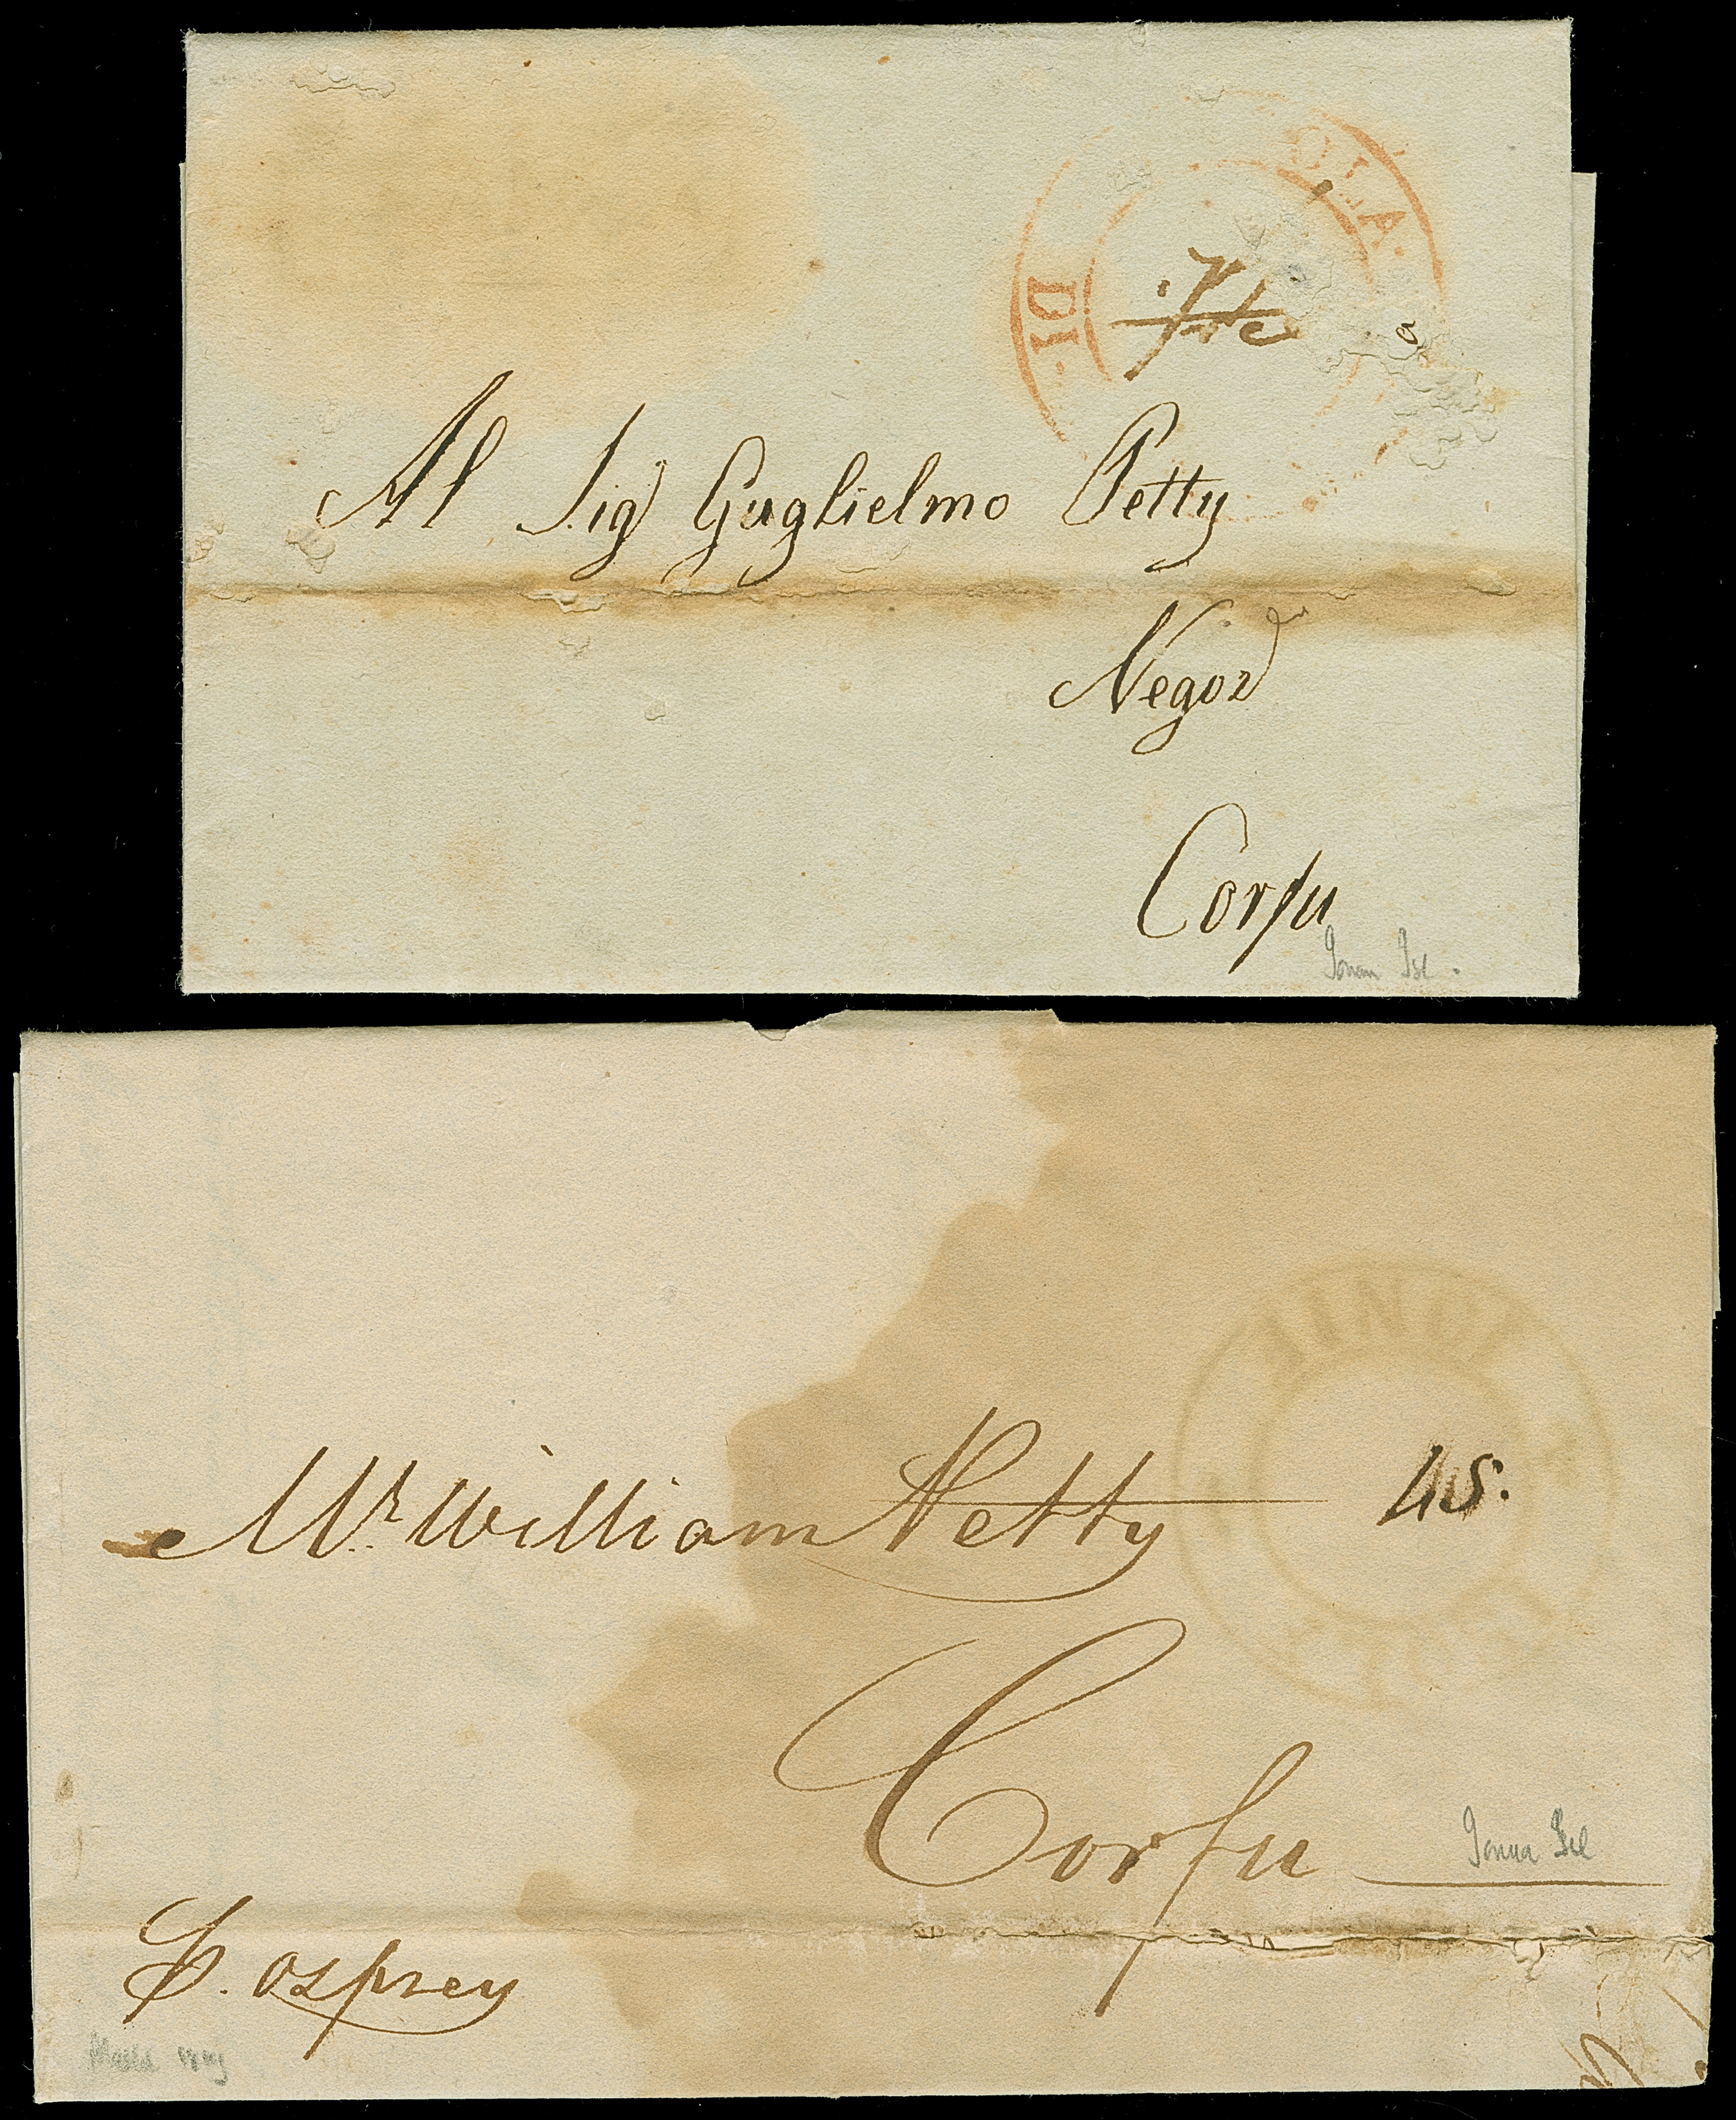 OLA.
DI
Al Sig Guglielmo Petty
Negoz
Corfu
Ionian Isl.
Mr. William Petty 45.
Corfu
Ionian Isl
P. Osprey